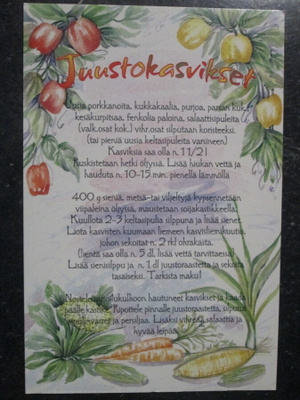 Juustokasvikset
Uusia porkkanoita, kukkakaalia, purjoa, parsan kuk,
kesäkurpitsaa, fenkolia paloina, salaattisipuleita
(valk.osat kok.) vihr.osat silputaan koristeeksi.
(tai pieniä uusia keltasipuleita varsineen)
Kasviksia saa olla n. 1 1/2 l
Kuskistetaan hetki öljyssä. Lisää hiukan vettä ja
hauduta n. 10-15 min. pienellä lämmöllä
400 g sieniä, metsä-tai viljeltyjä kypsennetään
viipaleina öljyssä, maustetaan soijakastikkeella)
Kuullota 2-3 keltasipulia silppuna ja lisää sienet.
Liota kasvisten kuumaan liemeen kasvisliemikuutio,
johon sekoitat n. 2 rkl ohrakasta.
(lientä saa olla n. 5 dl, lisää vettä tarvittaessa)
Lisää sienisilppu ja n. 1 dl juustoraastetta ja sekoita
tasaiseksi. Tarkista maku!
hautuneet kasvikset ja kaada
päälle kastike. Ripottele pinnalle juustoraastetta, silputut
ja persiljaa. Lisäksi vihreää salaattia ja
hyvää leipää.